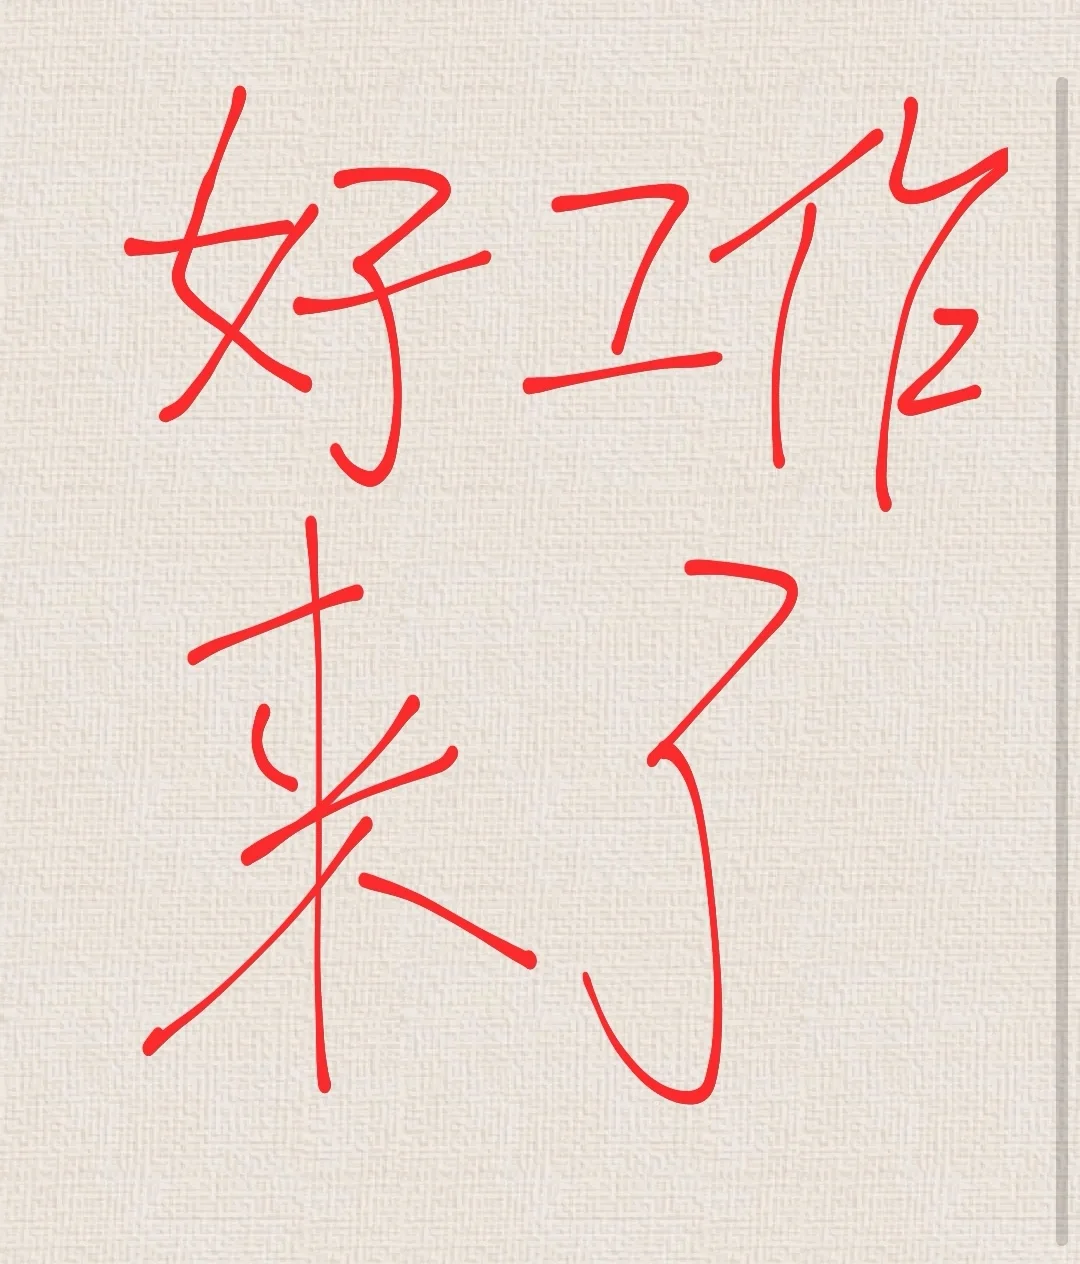 好工作
来了